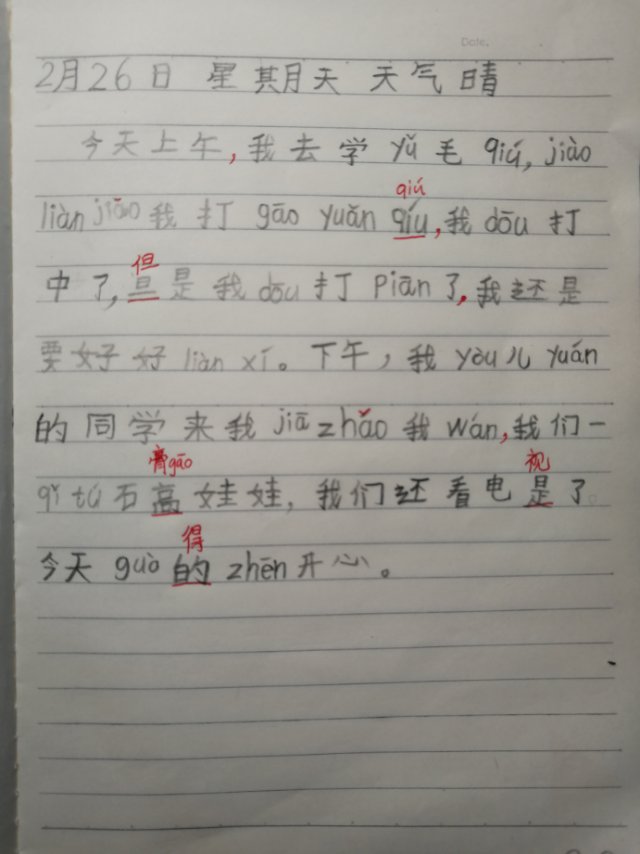 Date.
2月26日 星期天 天气晴
今天上午,我去学yǔ毛qiú,jiào
qiú
liàn jiāo我打gāo yuǎn qíu,我dōu打
但
中了,旦是我dōu打Piān了,我还是
要好好liàn xí。下午,我yòu儿yuán
的同学来我jiā zhǎo我wán,我们一
膏gāo 视
qǐ tú石高娃娃,我们还看电是了。
得
今天guò的zhēn开心。